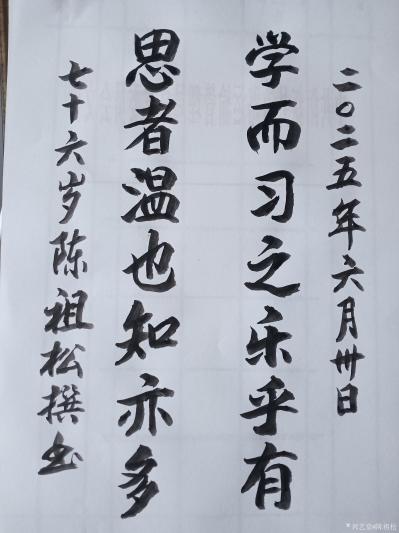 二〇二五年六月卅日
学而习之乐乎有
思者温也知亦多
七十六岁陈祖松撰书